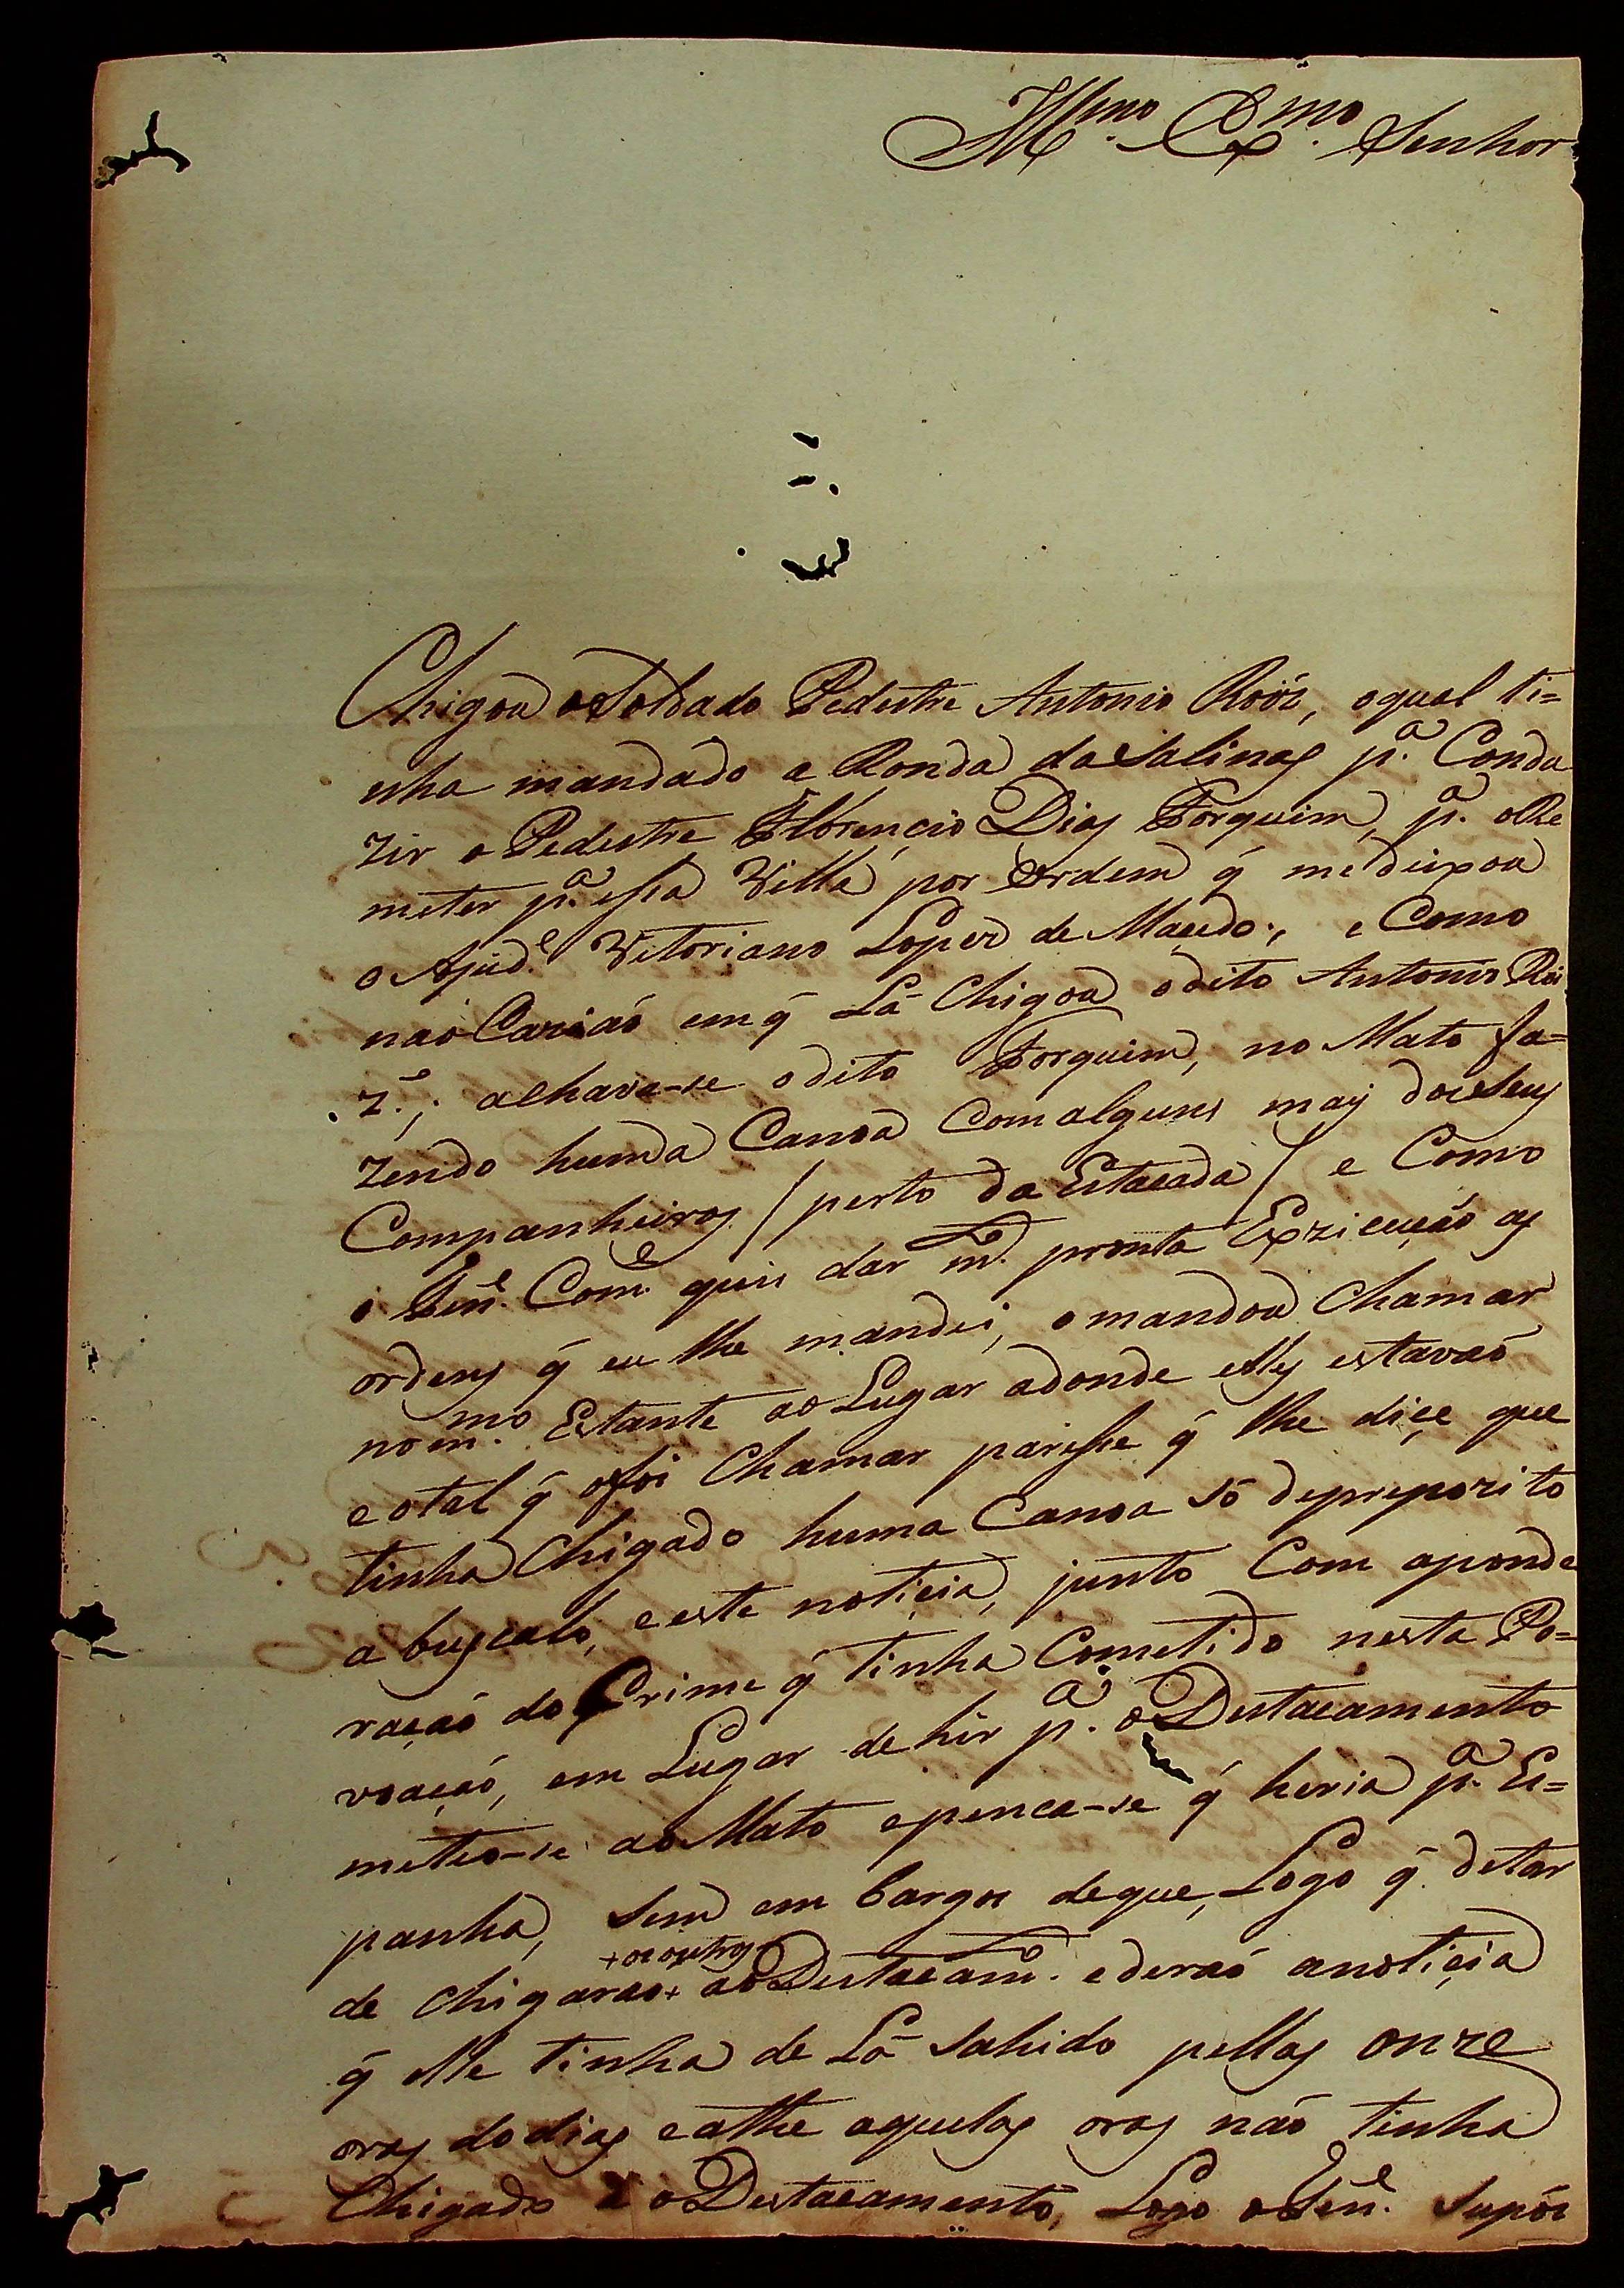 Illmo. Exmo. Senhor
Chigou o Soldado Pedestre Antonio Roiz, o qual ti=
nha mandado a Ronda da Salinas pa. Condu
zir o Pedestre Florencio Dias Forquim, pa. o Re
meter pa. essa Villa por Ordem q̃ me deixou
o Ajude. Vitoriano Lopez de Macedo., e Como
na oCaziaó em q̃ Lá Chigou o dito Antonio Roi
z., alhava-se o dito Forquim, no Mato fa=
zendo huma Canoa Com alguns mais dos Seus
Companheiros / perto da Estacada / e Como
o Tene. Come. quis dar mto. pronta Exzicução as
ordens q̃ eu lhe mandei, o mandou Chamar
no mmo. Estante ao Lugar adonde elles estavaó
e o tal q̃ o foi Chamar parese q̃ lhe diçe que
tinha Chigado huma Canoa só de preporzito
a buscalo, e este noticia, junto Com a ponde
raçaó do Crime q̃ tinha Cometido nesta Po=
voaçaó, em Lugar de hir pa. o Destacamento
meteo-se ao Mato e penca-se q̃ heria pa. Es=
panha, Sem em bargos de que, Logo q̃ de tar
+ os outros
de chigarao + ao Destacamto. e deraó a noticia
q̃ elle tinha de Lá Sahido pellas onze
oras do dias e athe aquelas oras não tinha
Chigado a o Destacamento, Logo o Tene. Supós